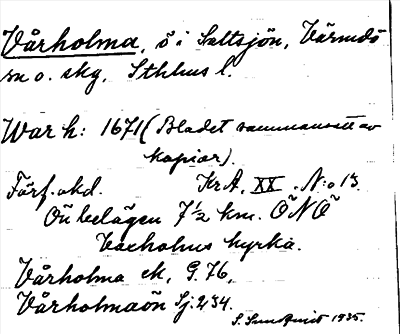 Vårholma, ö i Saltsjön, Värmdö
sn o. skg, Sthlms l.
War h: 1671 (Bladet sammansatt av
kopior).
Förf. okd. KrA, XX. N:o 13.
Ön belägen 7½ km. ÖNÖ
Vaxholms kyrka.
Vårholma ek, G. 76,
Vårholmaön Sj: 234.
S. Sundqvist 1935.